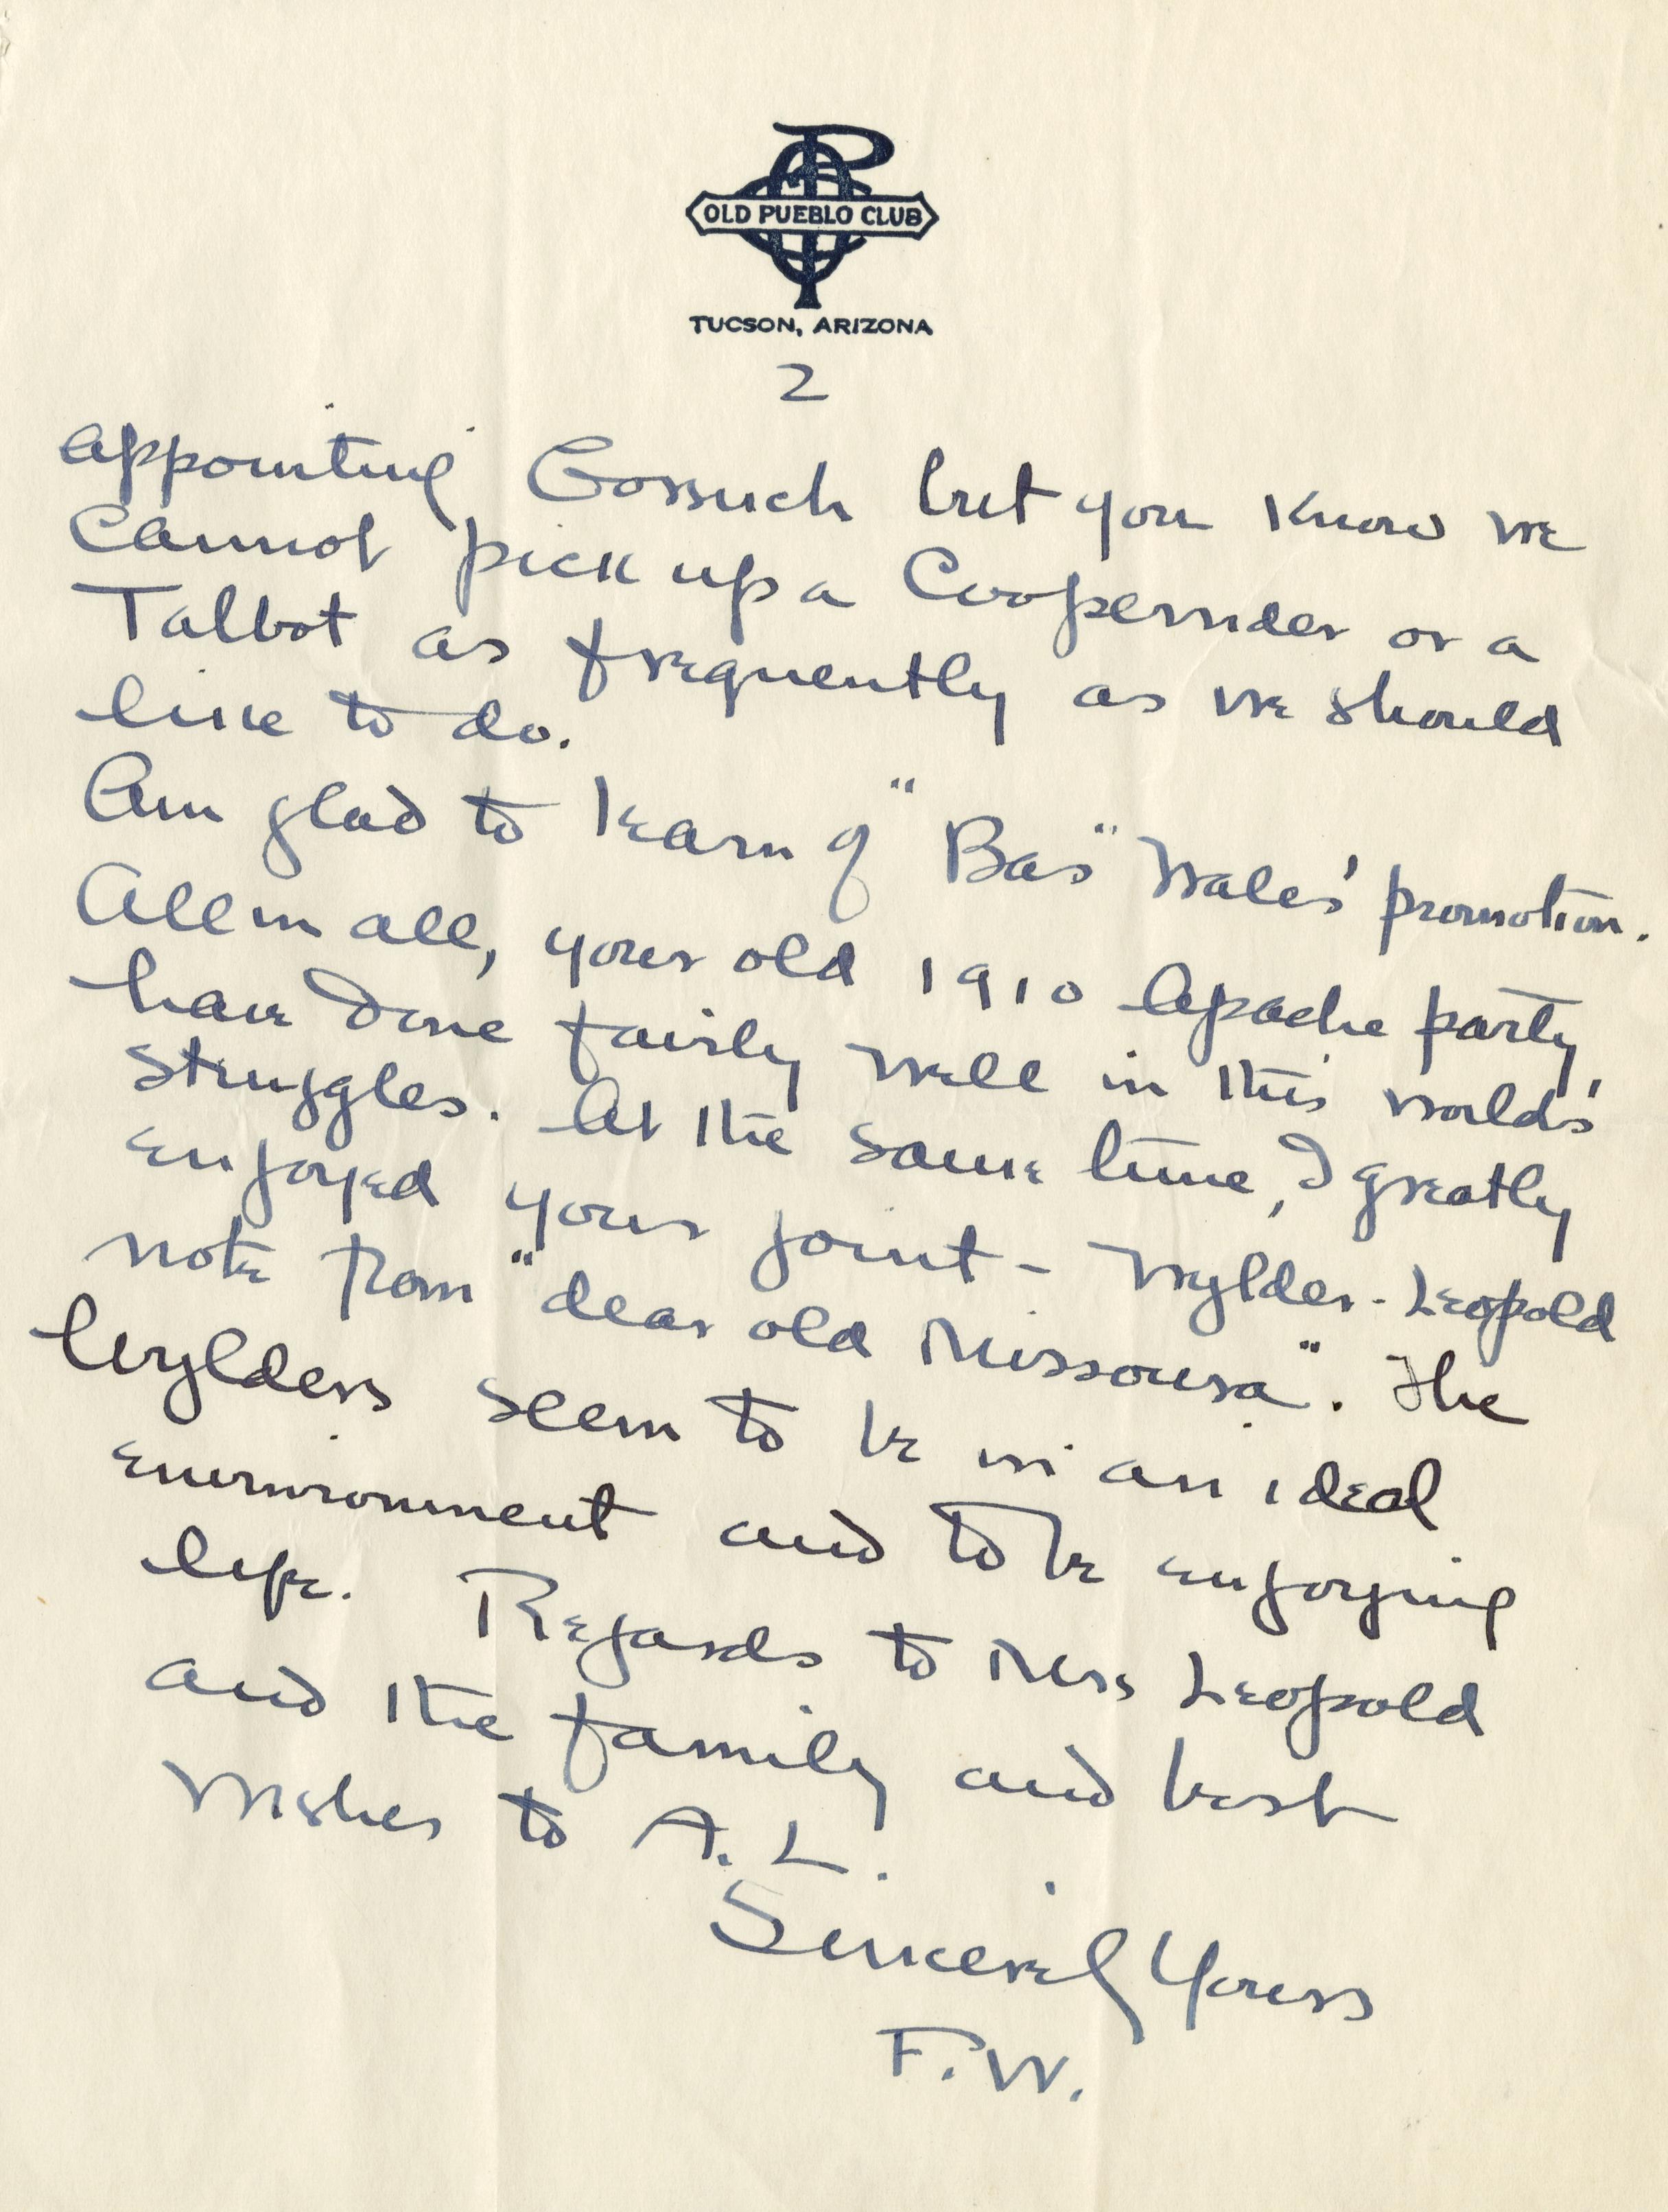 OLD PUEBLO CLUB
TUCSON, ARIZONA
2
appointing Gorsuch but you know we
cannot pick up a Cooperrider or a
Talbot as frequently as we should
like to do.
Am glad to learn of "Bas" Wales' promotion.
All in all, your old 1910 Apache party
have done fairly well in this world's
struggles. At the same time, I greatly
enjoyed your joint - Wylder - Leopold
note from "dear old Missoura". The
Wylders seem to be in an ideal
environment and to be enjoying
life. Regards to Mrs Leopold
and the family and best
wishes to A. L.
Sincerely Yours
F. W.